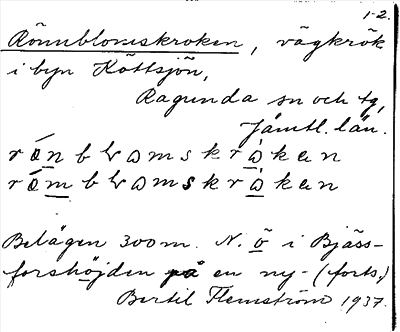 1-2.
Rönnblomskroken, vägkrök
i byn Köttsjön,
Ragunda sn och tg,
Jämtl. län.
Belägen 300 m. N. ö i Bjäss-
forshöjden på en ny- (forts.)
Bertil Flemström 1937.